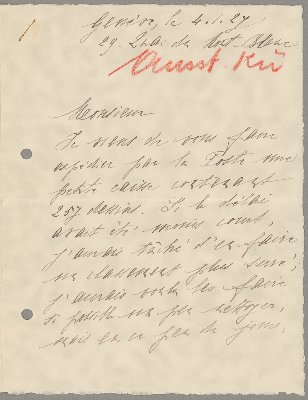 Genève, le 4.1.27
29. Quai du Mont Blanc
Kunst. Kü
Monsieur
Je viens de vous faire
expédier par la Poste une
petite caisse contenant
257 dessins. Si le délai
avait été moins court,
j'aurais tâché d'en faire
un classement plus serré,
j'aurais voulu les faire
si possible un peu nettoyer,
mais en ce peu de jours,